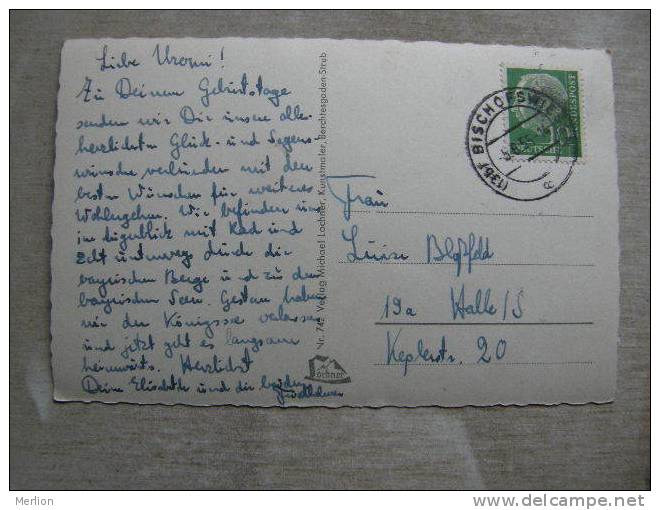 Liebe Uromi!
Zu Deinem Geburtstage
senden wir Dir unsere aller-
herzlichsten Glück- und Segens-
wünsche verbunden mit den
besten Wünschen für weiteres
Wohlergehen. Wir befinden uns
im Augenblick mit Rad und
Zelt unterwegs durch die
bayrischen Berge und zu den
bayrischen Seen. Gestern haben
wir den Königssee verlassen
und jetzt geht es langsam
heimwärts. Herzlichst
Deine Elisabeth und die beiden
Nr. 742 Verlag Michael Lochner, Kunstmaler, Berchtesgaden-Strub
Lochner
(13b) BISCHOFSWIE
DEUTSCHE
BUNDESPOST
10
Frau
Luise Bloßfeld
19a Halle/S
Keplerstr. 20
Merlion
delcampe.net